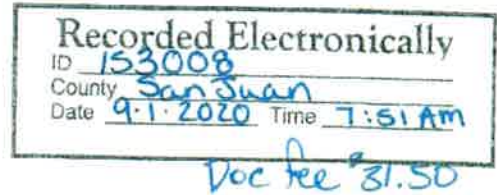 Recorded Electronically
ID 153008
County San Juan
Date 9·1·2020 Time 7:51 AM
Doc fee $31.50